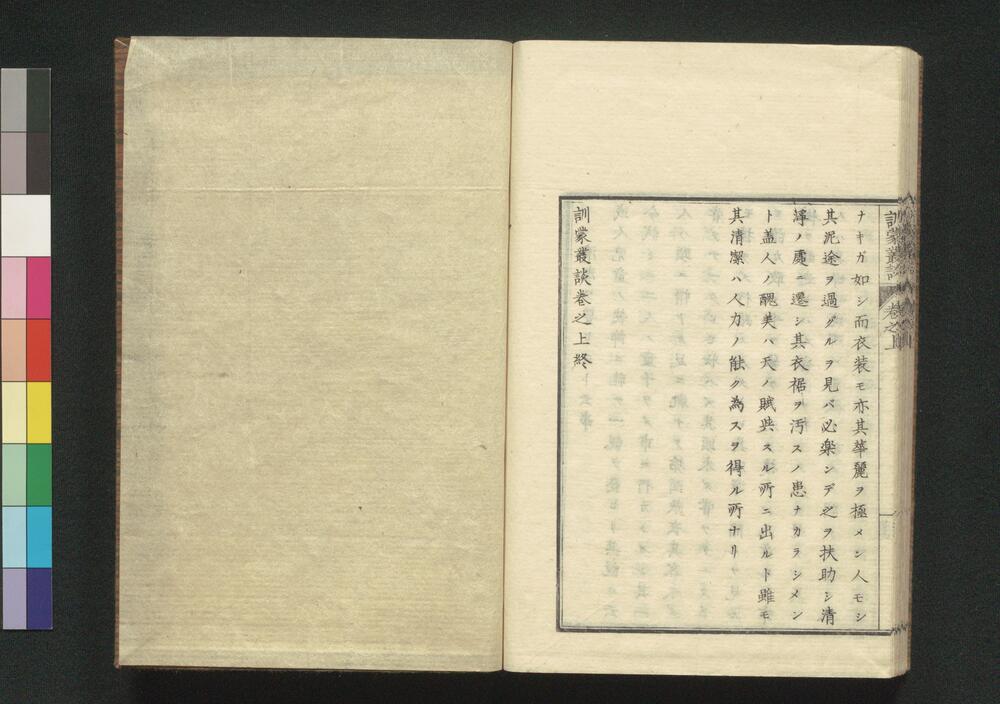 訓蒙叢談 卷之上
ナキガ如シ而衣装モ亦其華麗ヲ極メン人モシ
其泥途ヲ過グルヲ見バ必楽ンデ之ヲ扶助シ清
淨ノ處ニ遷シ其衣裾ヲ汚スノ患ナカラシメン
ト蓋人ノ醜美ハ天ノ賦與スル所ニ出ルト雖モ
其清潔ハ人力ノ能ク為スヲ得ル所ナリ
訓蒙叢談卷之上終